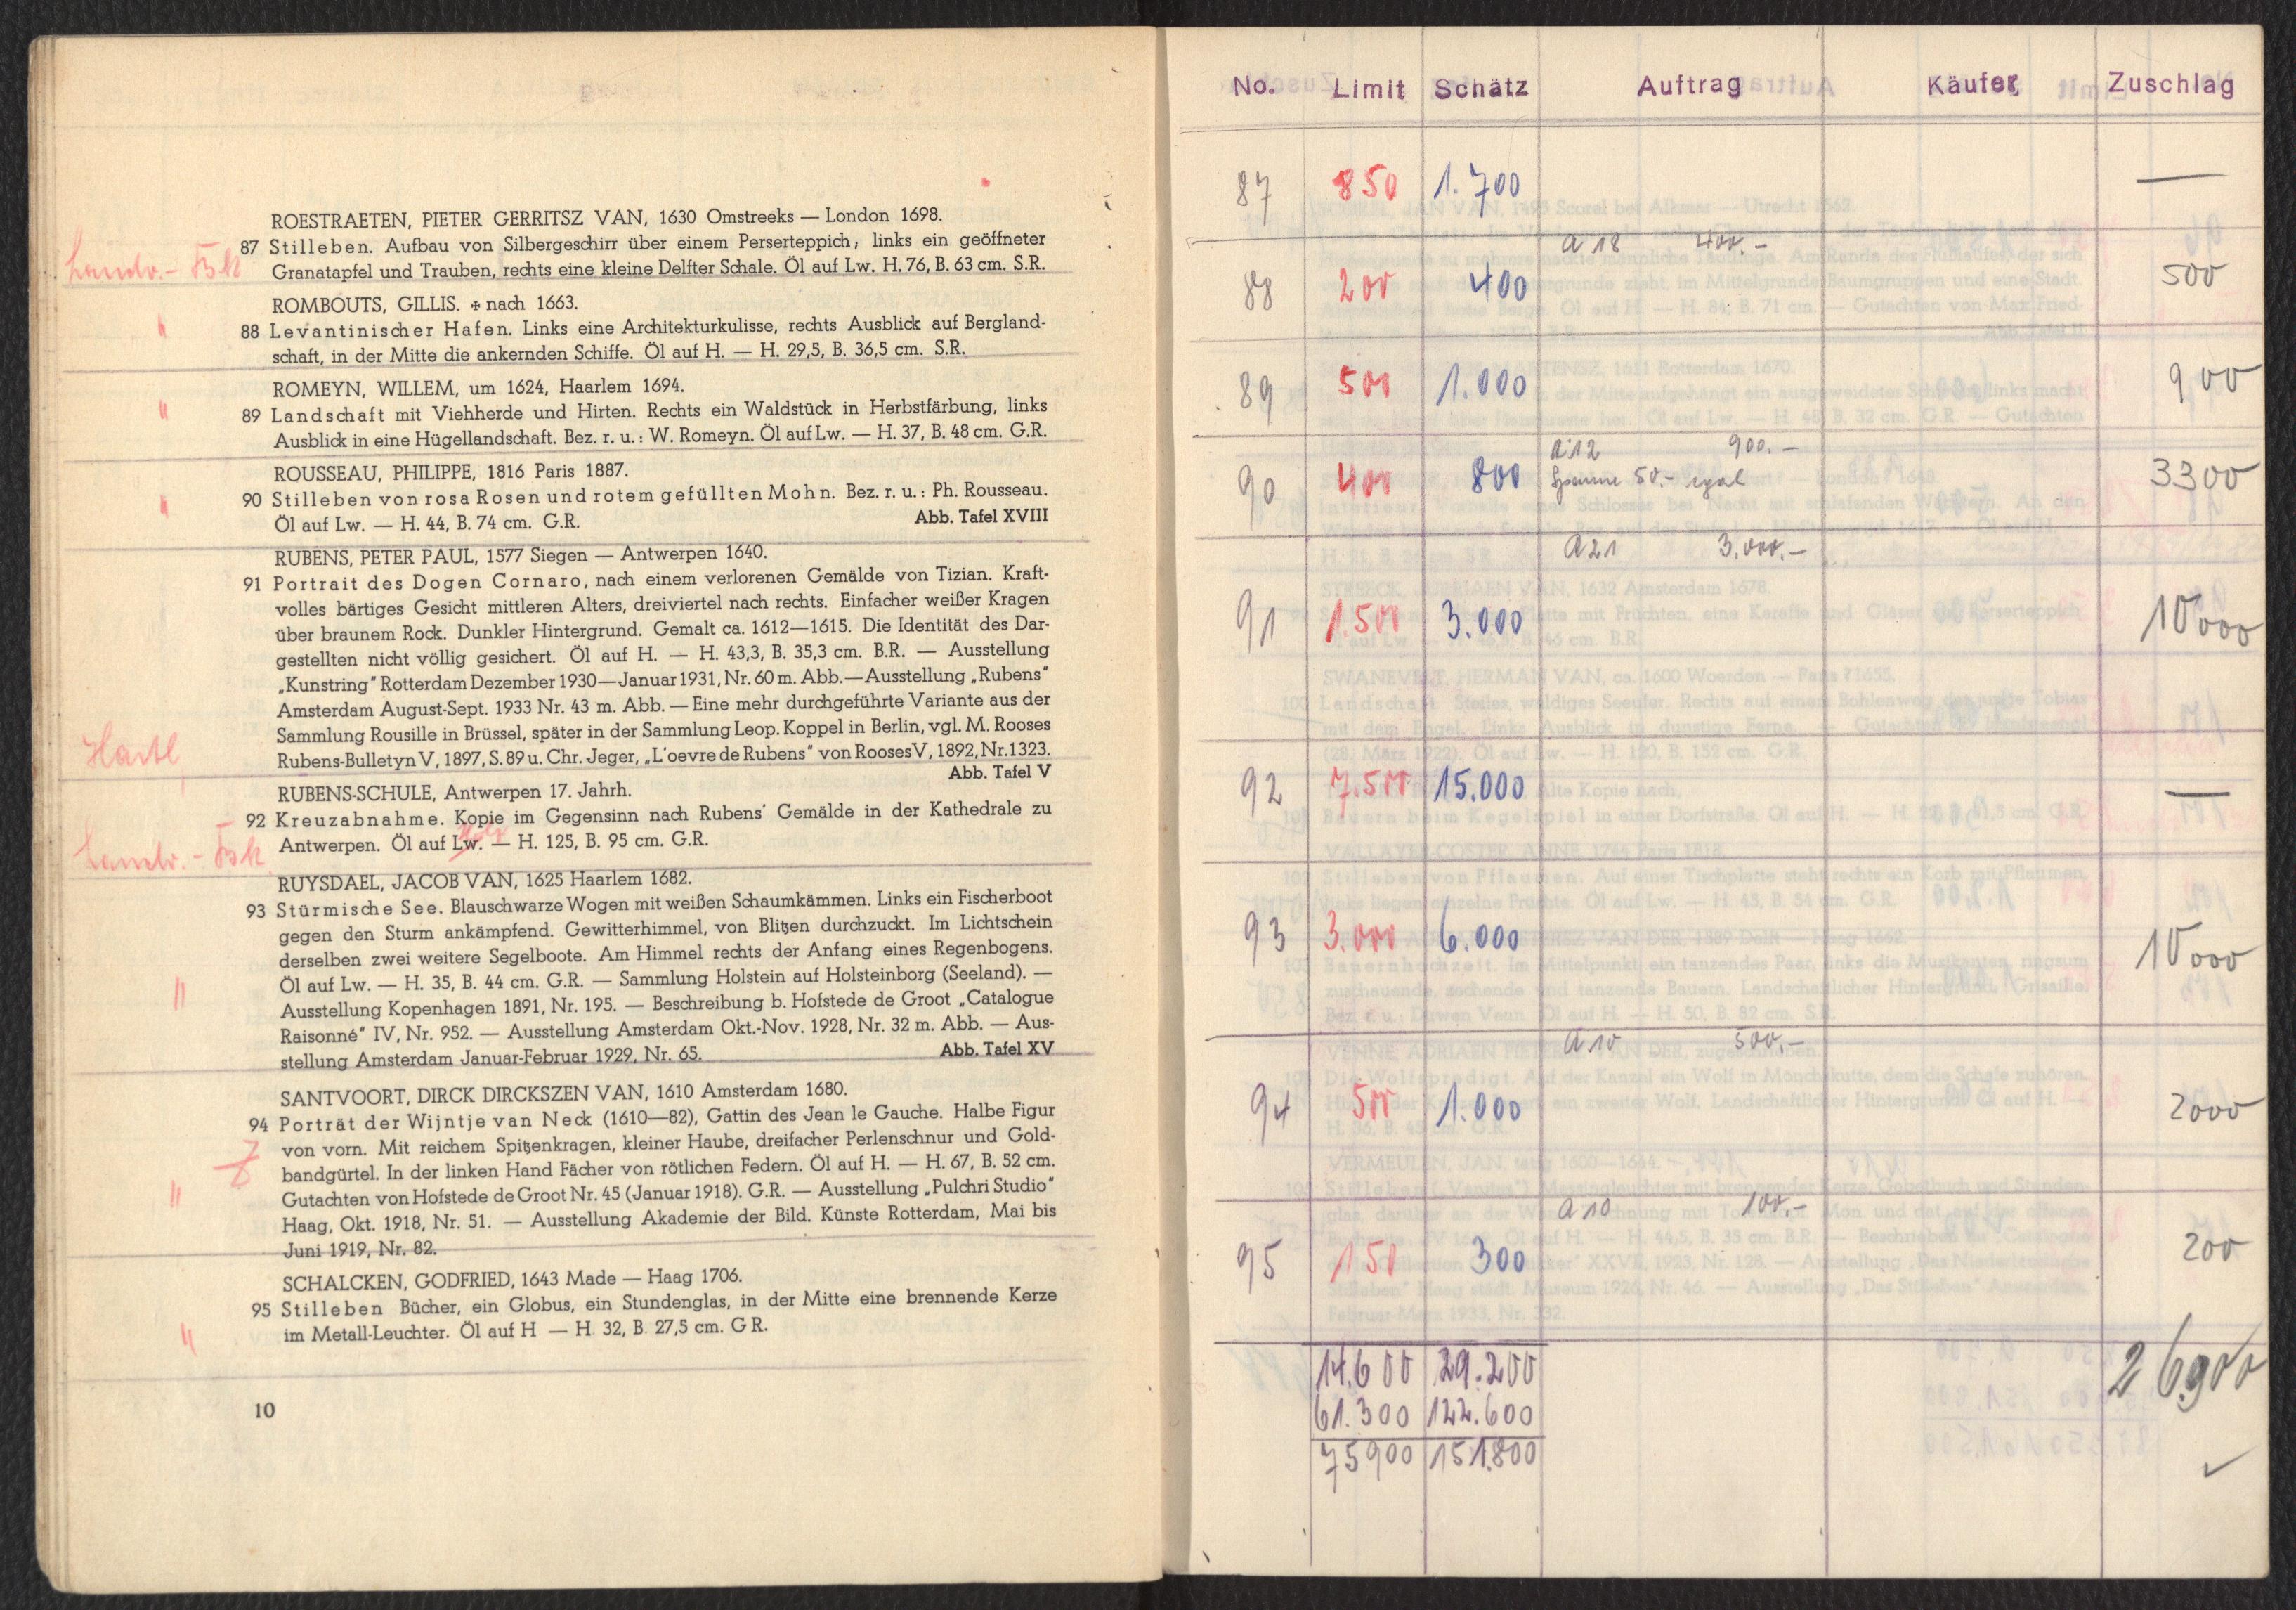 ROESTRAETEN, PIETER GERRITSZ VAN, 1630 Omstreeks — London 1698.
87 Stilleben. Aufbau von Silbergeschirr über einem Perserteppich; links ein geöffneter
Granatapfel und Trauben, rechts eine kleine Delfter Schale. Öl auf Lw. H. 76, B. 63 cm. S.R.
ROMBOUTS, GILLIS. ✠ nach 1663.
" 88 Levantinischer Hafen. Links eine Architekturkulisse, rechts Ausblick auf Bergland-
schaft, in der Mitte die ankernden Schiffe. Öl auf H. — H. 29,5, B. 36,5 cm. S.R.
ROMEYN, WILLEM, um 1624, Haarlem 1694.
" 89 Landschaft mit Viehherde und Hirten. Rechts ein Waldstück in Herbstfärbung, links
Ausblick in eine Hügellandschaft. Bez. r. u.: W. Romeyn. Öl auf Lw. — H. 37, B. 48 cm. G.R.
ROUSSEAU, PHILIPPE, 1816 Paris 1887.
" 90 Stilleben von rosa Rosen und rotem gefüllten Mohn. Bez. r. u.: Ph. Rousseau.
Öl auf Lw. — H. 44, B. 74 cm. G.R. Abb. Tafel XVIII
RUBENS, PETER PAUL, 1577 Siegen — Antwerpen 1640.
91 Portrait des Dogen Cornaro, nach einem verlorenen Gemälde von Tizian. Kraft-
volles bärtiges Gesicht mittleren Alters, dreiviertel nach rechts. Einfacher weißer Kragen
über braunem Rock. Dunkler Hintergrund. Gemalt ca. 1612—1615. Die Identität des Dar-
gestellten nicht völlig gesichert. Öl auf H. — H. 43,3, B. 35,3 cm. B.R. — Ausstellung
„Kunstring" Rotterdam Dezember 1930—Januar 1931, Nr. 60 m. Abb.—Ausstellung „Rubens"
Amsterdam August-Sept. 1933 Nr. 43 m. Abb. — Eine mehr durchgeführte Variante aus der
Sammlung Rousille in Brüssel, später in der Sammlung Leop. Koppel in Berlin, vgl. M. Rooses
Rubens-Bulletyn V, 1897, S. 89 u. Chr. Jeger, „L'oevre de Rubens" von Rooses V, 1892, Nr. 1323.
Abb. Tafel V
RUBENS-SCHULE, Antwerpen 17. Jahrh.
92 Kreuzabnahme. Kopie im Gegensinn nach Rubens' Gemälde in der Kathedrale zu
Antwerpen. Öl auf Lw. Holz — H. 125, B. 95 cm. G.R.
RUYSDAEL, JACOB VAN, 1625 Haarlem 1682.
93 Stürmische See. Blauschwarze Wogen mit weißen Schaumkämmen. Links ein Fischerboot
gegen den Sturm ankämpfend. Gewitterhimmel, von Blitzen durchzuckt. Im Lichtschein
derselben zwei weitere Segelboote. Am Himmel rechts der Anfang eines Regenbogens.
" Öl auf Lw. — H. 35, B. 44 cm. G.R. — Sammlung Holstein auf Holsteinborg (Seeland). —
Ausstellung Kopenhagen 1891, Nr. 195. — Beschreibung b. Hofstede de Groot „Catalogue
Raisonné" IV, Nr. 952. — Ausstellung Amsterdam Okt.-Nov. 1928, Nr. 32 m. Abb. — Aus-
stellung Amsterdam Januar-Februar 1929, Nr. 65. Abb. Tafel XV
SANTVOORT, DIRCK DIRCKSZEN VAN, 1610 Amsterdam 1680.
94 Porträt der Wijntje van Neck (1610—82), Gattin des Jean le Gauche. Halbe Figur
von vorn. Mit reichem Spitzenkragen, kleiner Haube, dreifacher Perlenschnur und Gold-
bandgürtel. In der linken Hand Fächer von rötlichen Federn. Öl auf H. — H. 67, B. 52 cm.
" Gutachten von Hofstede de Groot Nr. 45 (Januar 1918). G.R. — Ausstellung „Pulchri Studio"
Haag, Okt. 1918, Nr. 51. — Ausstellung Akademie der Bild. Künste Rotterdam, Mai bis
Juni 1919, Nr. 82.
SCHALCKEN, GODFRIED, 1643 Made — Haag 1706.
95 Stilleben Bücher, ein Globus, ein Stundenglas, in der Mitte eine brennende Kerze
" im Metall-Leuchter. Öl auf H — H. 32, B. 27,5 cm. G R.
10
No. Limit Schätz Auftrag Käufer Zuschlag
87 850 1.700 —
A 18 400.-
88 200 400 500
89 500 1.000 900
A 12 900.-
90 400 800 50.- egal 3300
A 21 3.000.-
91 1.500 3.000 10000
92 7.500 15.000 —
93 3.000 6.000 10000
A 10 500.-
94 500 1.000 2000
A 10 100.-
95 150 300 200
14.600 29.200 26900
61.300 122.600
75900 151.800